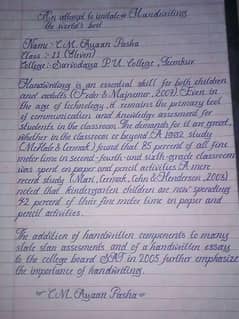 An attempt to imitate Handwriting
the world's best
Name: C.M. Ayaan Pasha
Class: 11 (Eleven)
College: Sarvodaya P.U. College, Tumkur
Handwriting is an essential skill for both children
and adults (Feder & Majnemer, 2007). Even in
the age of technology, it remains the primary tool
of communication and knowledge assesment for
students in the classroom. The demands for it are great,
whether in the classroom or beyond. A 1992 study
(McHale & Cermak) found that 85 percent of all fine
motor time in second-fourth-and sixth-grade classrooms
was spent on paper and pencil activities. A more
recent study (Marr, Cermak, Cohn & Henderson, 2003)
noted that kindergarten children are now spending
42 percent of their fine motor time on paper and
pencil activities.
The addition of handwritten components to many
state stan assesments and of a handwritten essay
to the college board SAT in 2005 further emphasize
the importance of handwriting.
C.M. Ayaan Pasha